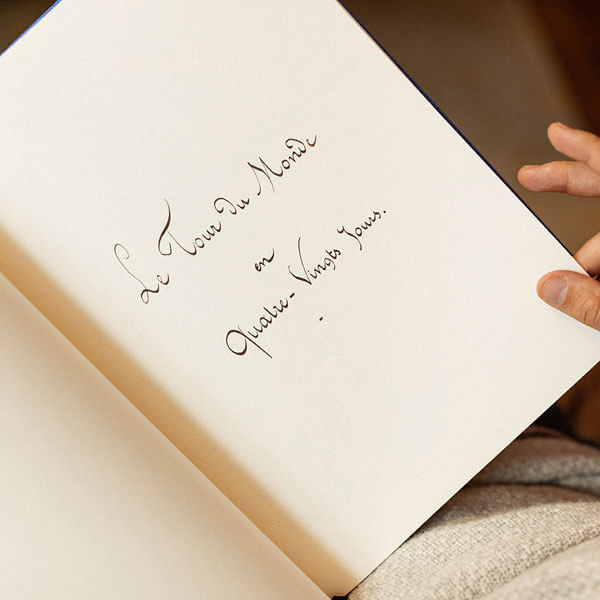 Le Tour du Monde
en
Quatre-Vingts Jours.